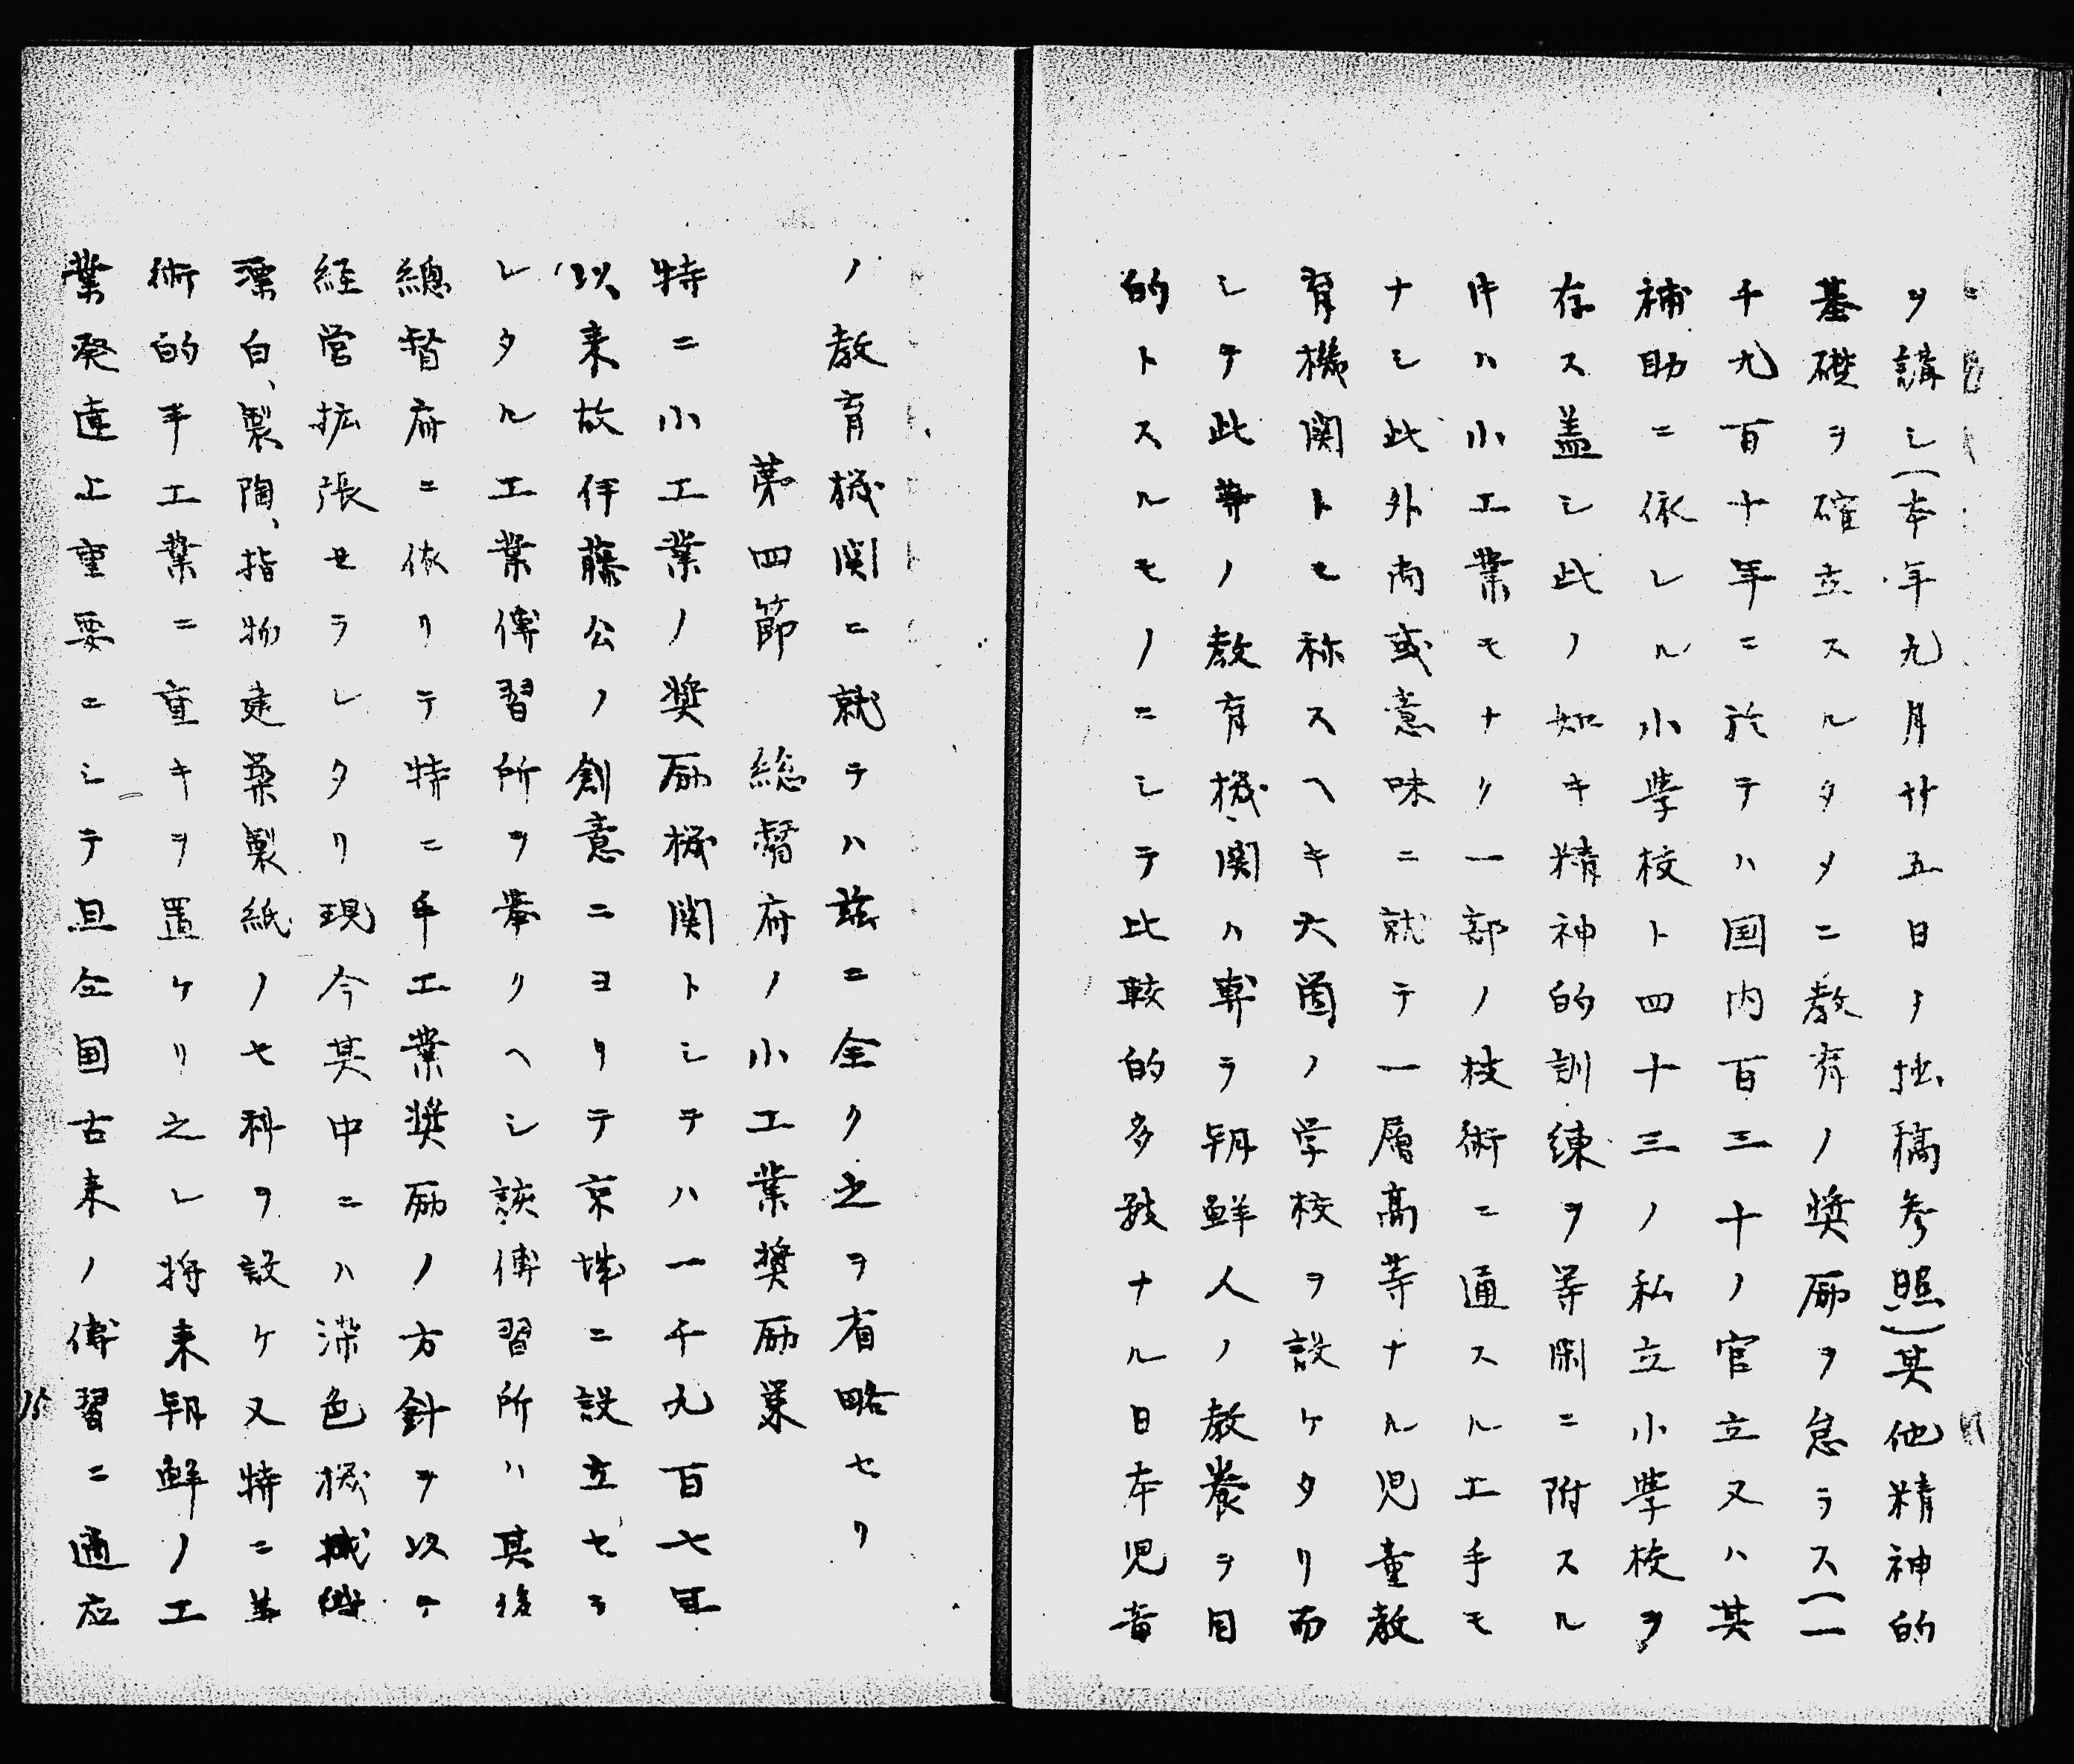 ヲ講シ(本年九月廿五日ノ拙稿参照)其他精神的
基礎ヲ確立スルタメニ教育ノ奨励ヲ怠ラス(一
千九百十年ニ於テハ国内百三十ノ官立又ハ其
補助ニ依レル小学校ト四十三ノ私立小学校ヲ
存ス蓋シ此ノ如キ精神的訓練ヲ等閑ニ附スル
件ハ小工業モナク一部ノ技術ニ通スル工手モ
ナシ此外尚或意味ニ就テ一層高等ナル児童教
育機関トモ称スヘキ六箇ノ学校ヲ設ケタリ而
シテ此等ノ教育機関ハ専ラ朝鮮人ノ教養ヲ目
的トスルモノニシテ比較的多数ナル日本児童
ノ教育機関ニ就テハ茲ニ全ク之ヲ省略セリ
第四節 総督府ノ小工業奨励策
特ニ小工業ノ奨励機関トシテハ一千九百七年
以来故伊藤公ノ創意ニヨリテ京城ニ設立セラ
レタル工業傳習所ヲ挙クヘシ該傳習所ハ其後
總督府ニ依リテ特ニ手工業奨励ノ方針ヲ以テ
経営拡張セラレタリ現今其中ニハ染色機械織
漂白、製陶、指物建築製紙ノ七科ヲ設ケ又特ニ美
術的手工業ニ重キヲ置ケリ之レ将来朝鮮ノ工
業発達上重要ニシテ且仝国古来ノ傳習ニ適応